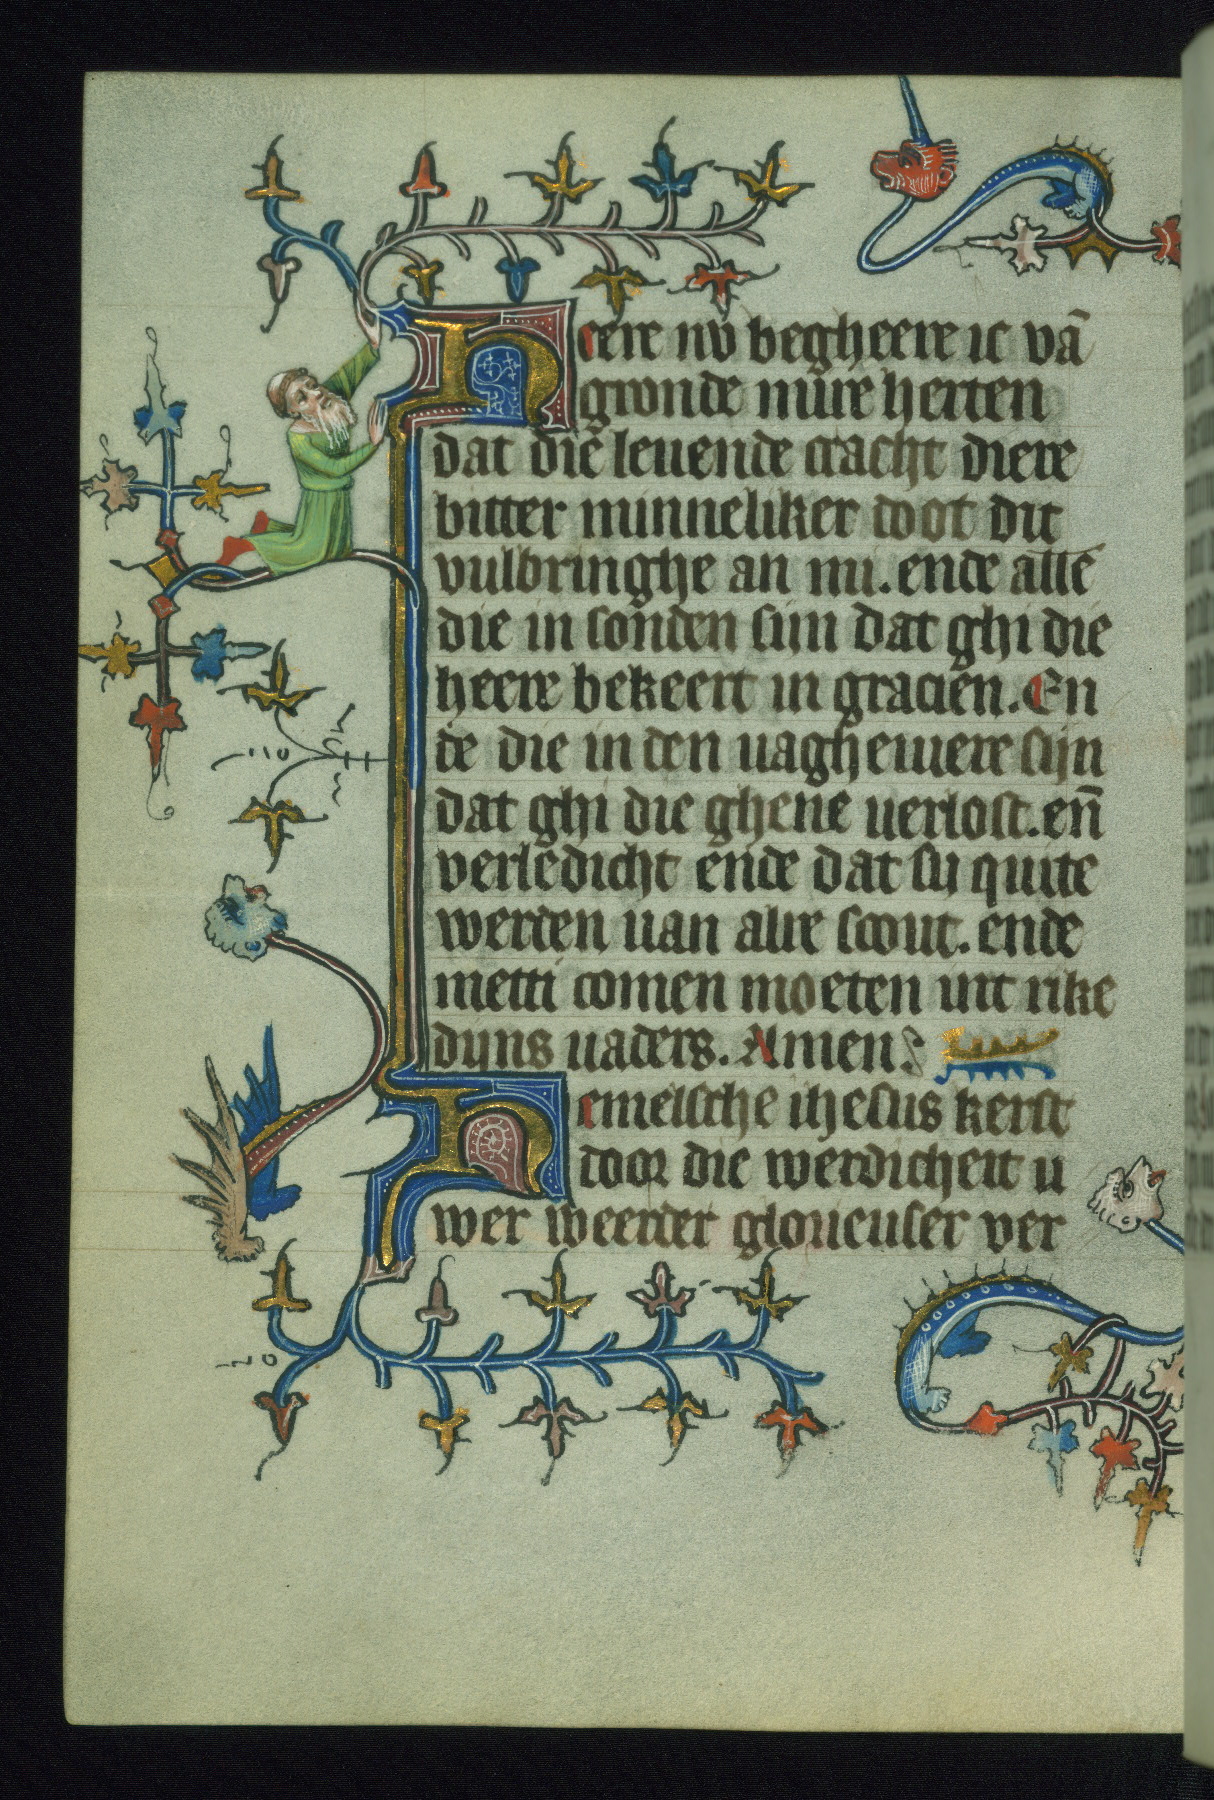 Heere nv begheere ic vā
gronde mijre herten
dat die leuende cracht diere
bitter minneliker doot dit
vulbringhe an mi. ende alle
die in sonden sijn dat ghi die
heere bekeert in gracien. En
de die in den uagheuiere sijn
dat ghi die ghene uerlost. eñ
verledicht ende dat sij quite
werden uan alre scout. ende
metti comen moeten int rike
dijns uaders. Amen
Hemelsche ihesus kerst
door die werdicheit u
wer weerder glorieuser ver